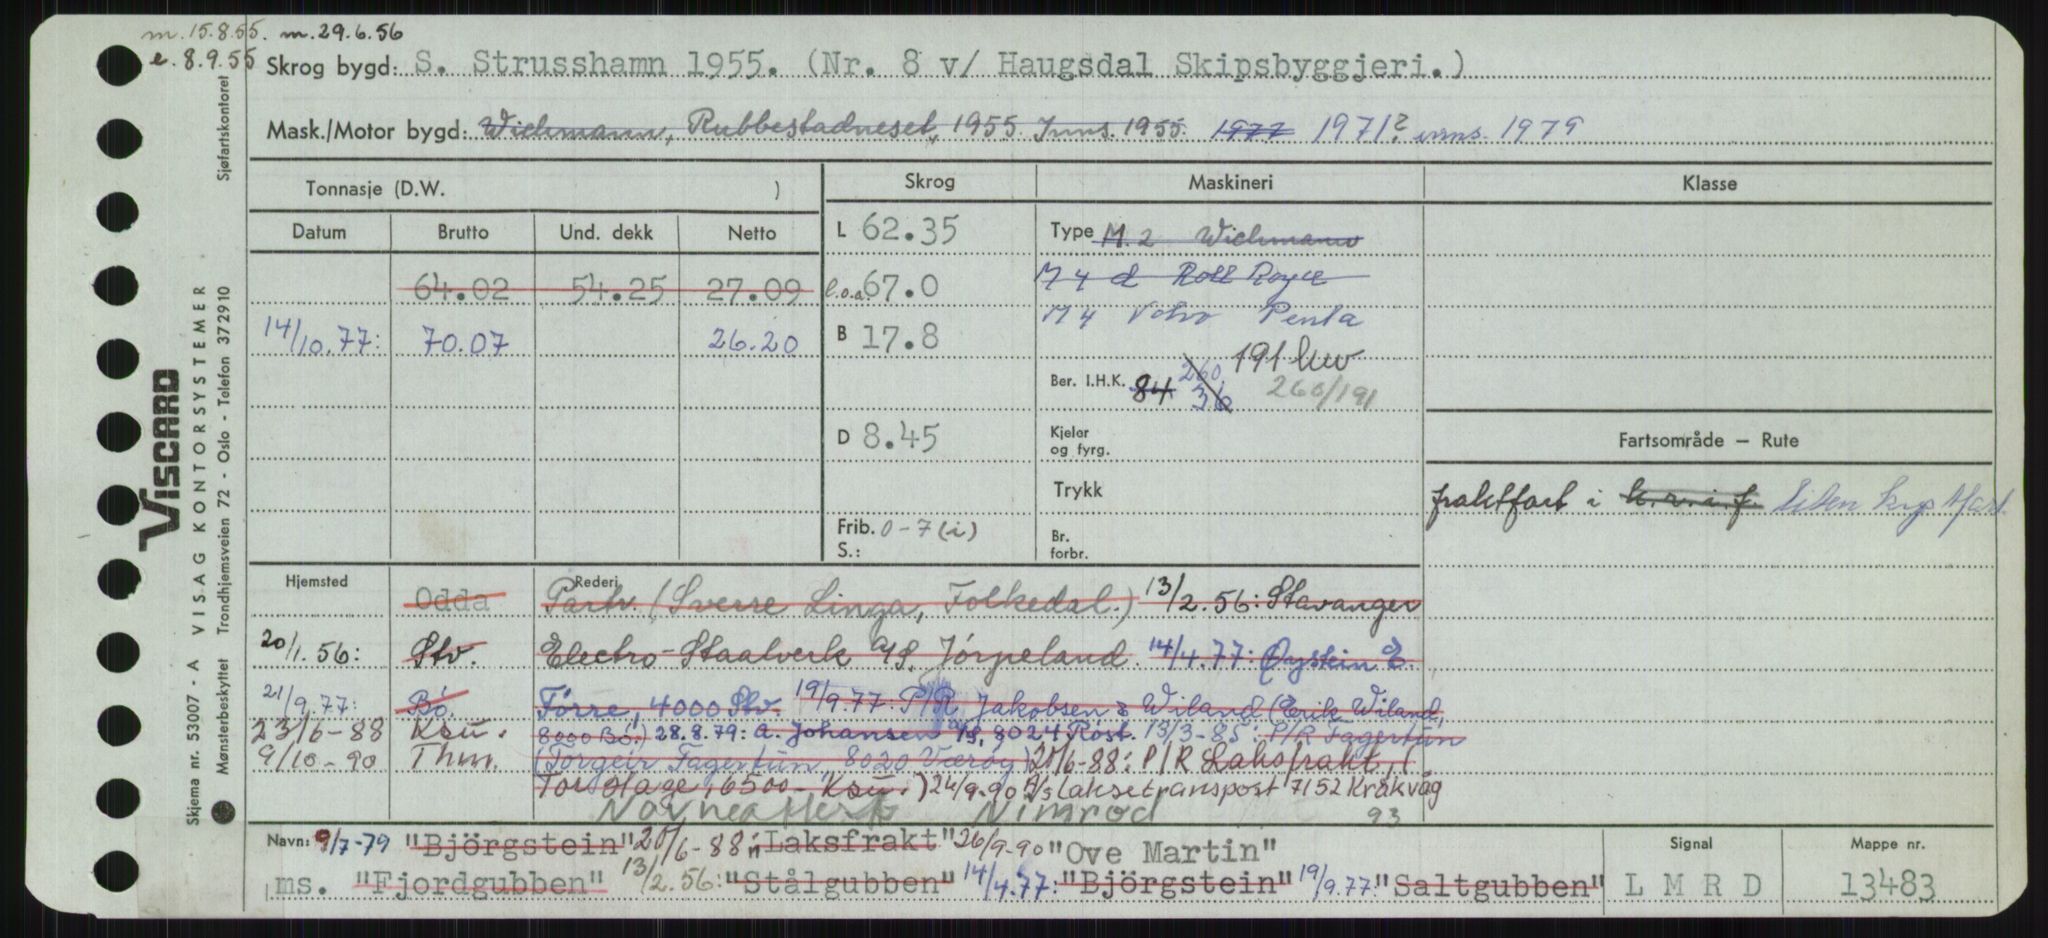 m. 15.8.55. m. 29.6.56
e. 8.9.55
Skrog bygd: S. Strusshamn 1955. (Nr. 8 v/ Haugsdal Skipsbyggjeri.)
Mask./Motor bygd: Wichmann, Rubbestadneset, 1955 Inns. 1955. 1977 1971? inns. 1979
Tonnasje (D.W. )
Skrog
Maskineri
Klasse
Datum Brutto Und. dekk Netto
64.02 54.25 27.09
14/10.77: 70.07 26.20
L 62.35
l.o.a. 67.0
B 17.8
D 8.45
Frib. 0-7 (i)
S.:
Type M. 2 Wichmann
M 4 d Roll Royce
M 4 Volvo Penta
191 kw
Ber. I.H.K. 84 260 36 260/191
Kjeler og fyrg.
Trykk
Br. forbr.
Fartsområde – Rute
fraktfart i k.r.i.f. liten kystfart
Hjemsted Rederi
Odda Partr. (Sverre Linga, Folkedal.) 13/2.56: Stavanger
20/1.56: Stv. Electro-Staalverk A/S, Jörpeland. 14/4.77: Øystein E.
21/9.77: Bö. Förre, 4000 Stv. 19/9.77: P/R Jakobsen & Wiland (Erik Wiland,
23/6-88 Ksu. 8000 Bö.) 28.8.79: A. Johansen A/S, 8024 Röst. 13/3-85: P/R Fagertun
9/10-90 Thm. (Torgeir Fagertun, 8020 Væröy) 20/6-88: P/R Laksfrakt, (
Tor Hage, 6500 Ksu.) 24/9-90 A/S Laksetransport 7152 Kråkvåg
Navneattest Nimrod 93
Navn: 9/7-79 "Björgstein" 20/6-88: "Laksfrakt" 26/9-90 "Ove Martin"
ms. "Fjordgubben" 13/2.56: "Stålgubben" 14/4.77: "Björgstein" 19/9.77: "Saltgubben"
Signal
L M R D
Mappe nr.
13483
VISCARD
Skjema nr. 53007 - A VISAG KONTORSYSTEMER Sjøfartskontoret
Mønsterbeskyttet Trondhjemsveien 72 - Oslo - Telefon 37 29 10